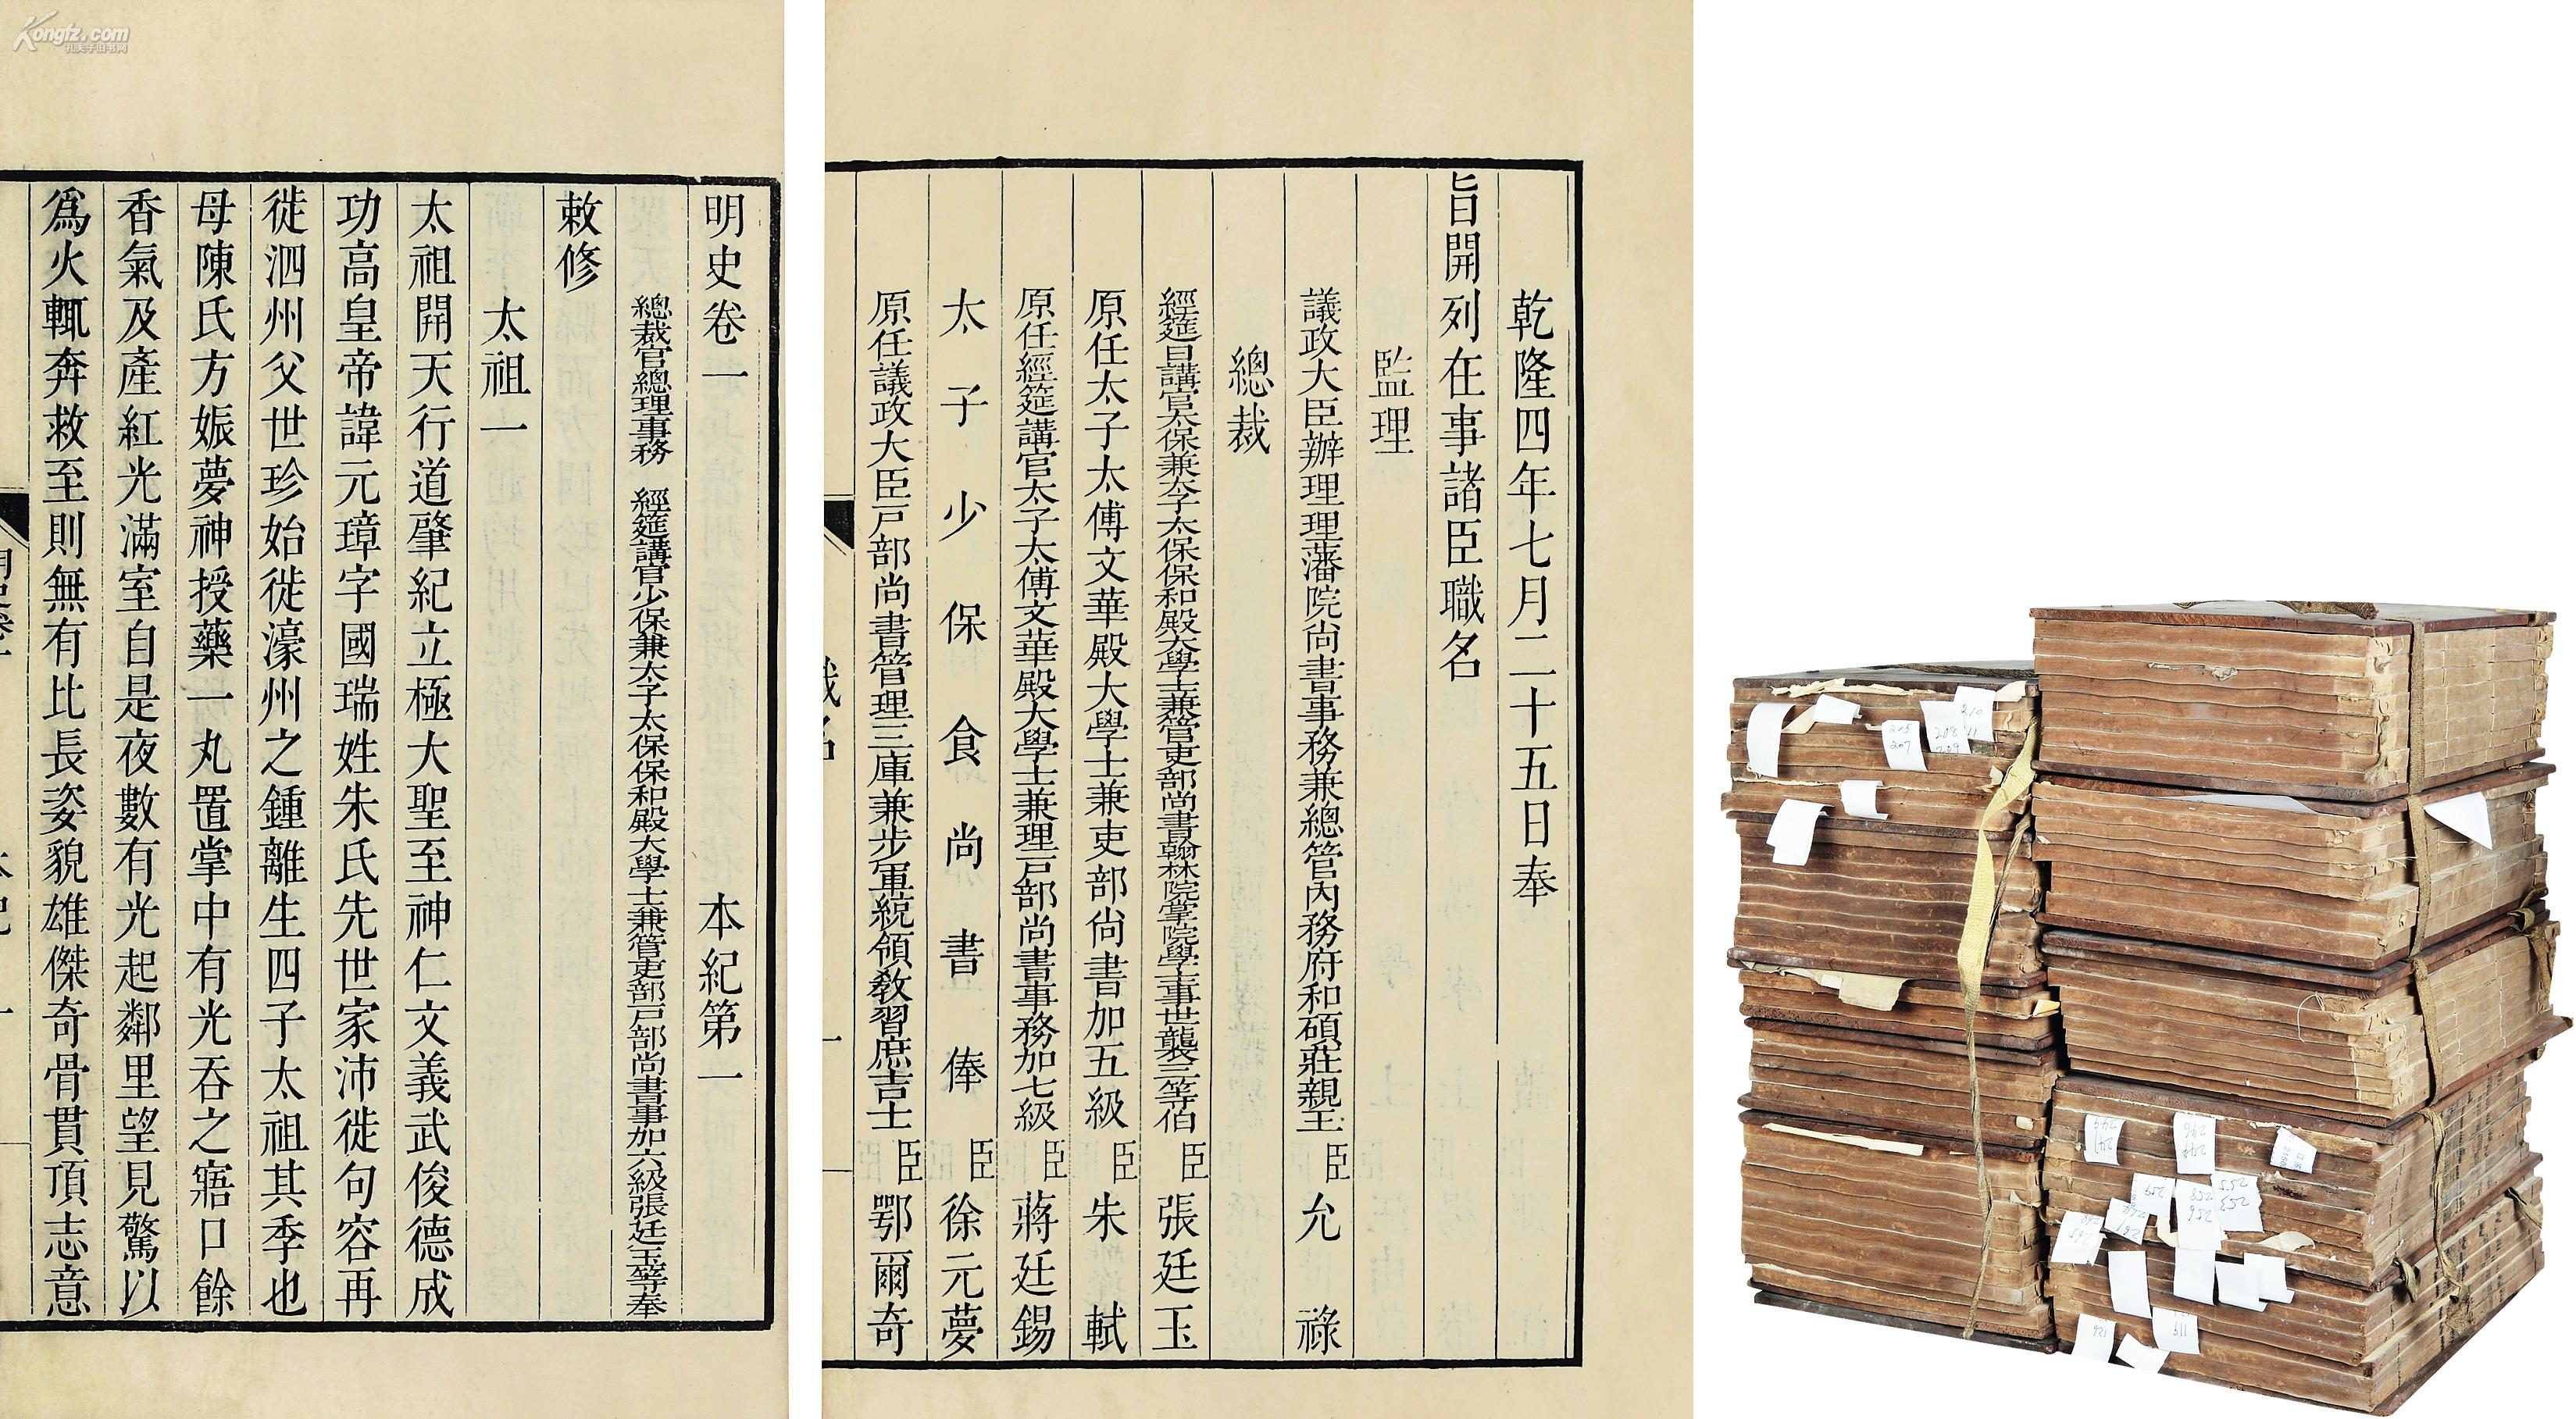 Kongfz.com
孔夫子旧书网
明史卷一 本紀第一
總裁官總理事務 經筵講官少保兼太子太保保和殿大學士兼管吏部戶部尚書事加六級張廷玉等奉
敕修
太祖一
太祖開天行道肇紀立極大聖至神仁文義武俊德成
功高皇帝諱元璋字國瑞姓朱氏先世家沛徙句容再
徙泗州父世珍始徙濠州之鍾離生四子太祖其季也
母陳氏方娠夢神授藥一丸置掌中有光吞之寤口餘
香氣及產紅光滿室自是夜數有光起鄰里望見驚以
為火輒奔救至則無有比長姿貌雄傑奇骨貫頂志意
乾隆四年七月二十五日奉
旨開列在事諸臣職名
監理
議政大臣辦理理藩院尚書事務兼總管內務府和碩莊親王臣允祿
總裁
經筵日講官太保兼太子太保保和殿大學士兼管吏部尚書翰林院掌院學士事世襲三等伯臣張廷玉
原任太子太傅文華殿大學士兼吏部尚書加五級臣朱軾
原任經筵講官太子太傅文華殿大學士兼理戶部尚書事務加七級臣蔣廷錫
太子少保食尚書俸臣徐元夢
原任議政大臣戶部尚書管理三庫兼步軍統領教習庶吉士臣鄂爾奇
職名 一
210
205
207
208
209
211